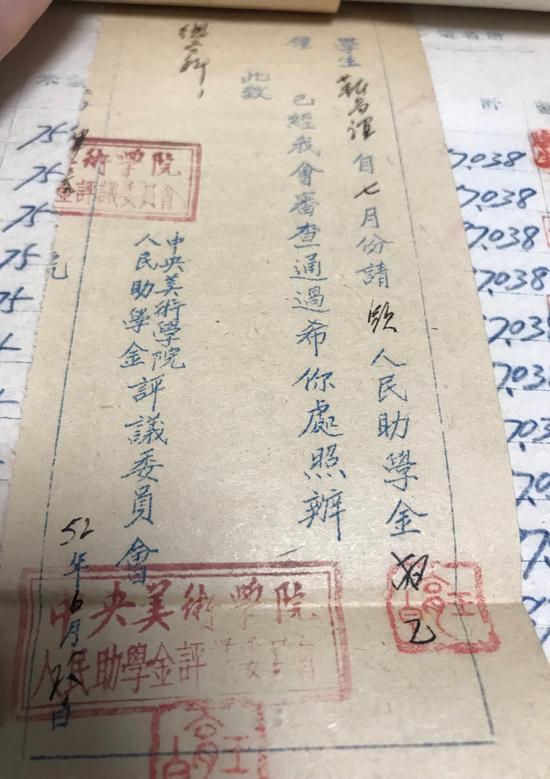 學生靳尚誼自七月份請領人民助學金乙
種已經我會審查通過希你處照辦
此致
總务科
中央美術學院
人民助學金評議委員會
52年6月日
術學院
金評議委員會
中央美術學院
人民助學金評議委員會
75
75
75
75
75
7,038
7,038
7,038
7,038
7,038
7,038